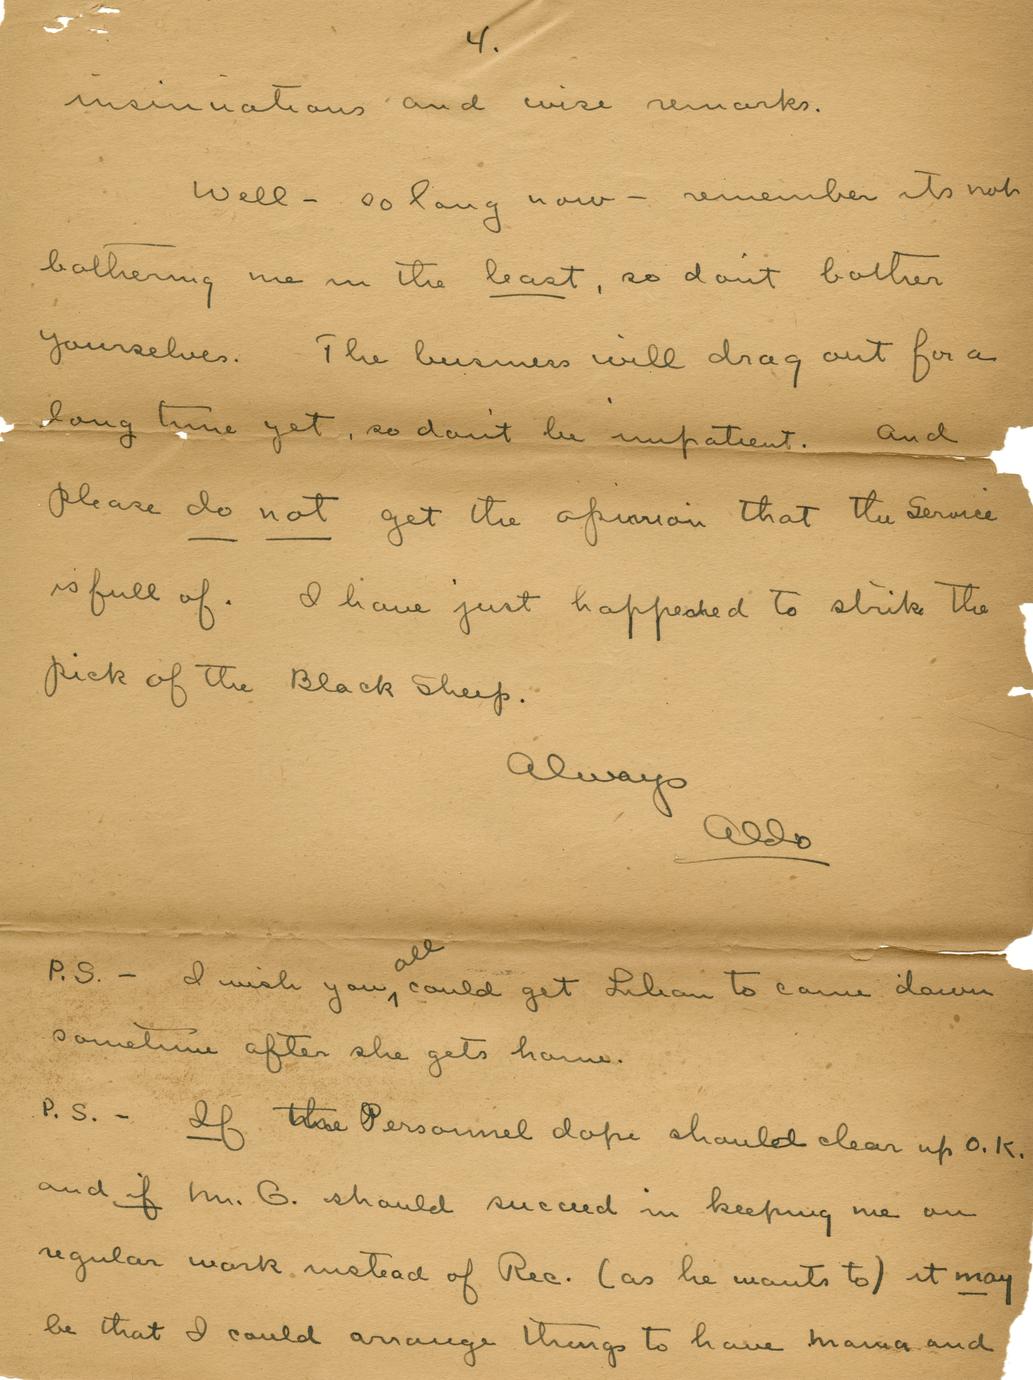 4.
insinuations and wise remarks.
Well - so long now - remember its not
bothering me in the least, so don't bother
yourselves. The business will drag out for a
long time yet, so don't be impatient. And
please do not get the opinion that the Service
is full of. I have just happened to strike the
pick of the Black Sheep.
Always
Aldo
P.S. - I wish you all could get Lilian to come down
sometime after she gets home.
P.S. - If the Personnel dope should clear up O.K.
and if Mr. C. should succeed in keeping me on
regular work instead of Rec. (as he wants to) it may
be that I could arrange things to have Mama and